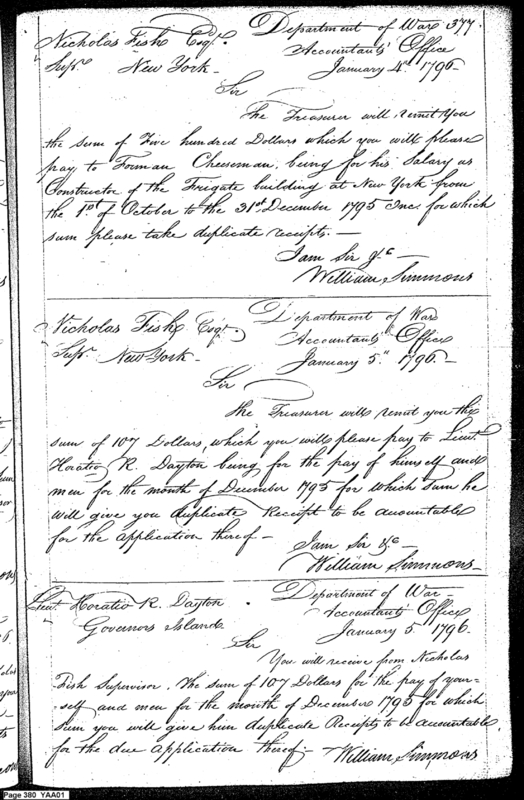 Nicholas Fish Esqr. Department of War 377.
Supr. New York - Accountants Office
January 4th 1796 -
Sir
The Treasurer will remit you
the sum of Five hundred Dollars which you will please
pay to Forman Cheseman, being for his Salary as
Constructor of the Frigate building at New York from
the 1st of October to the 31st December 1795 Inc. for which
sum please take duplicate receipts. -
I am Sir &c
William Simmons
Nicholas Fish Esqr. Department of War
Supr. New York - Accountants Office
January 5th 1796 -
Sir
The Treasurer will remit you the
sum of 107 Dollars, which you will please pay to Lieut.
Horatio R. Dayton being for the pay of himself and
men for the month of December 1795 for which sum he
will give you duplicate Receipt to be accountable
for the application thereof -
I am Sir &c -
William Simmons -
Lieut Horatio R. Dayton Department of War
Governors Island Accountants Office
January 5 1796.
Sir
You will receive from Nicholas
Fish Supervisor. The sum of 107 Dollars for the pay of your-
self and men for the month of December 1795 for which
sum you will give him duplicate Receipts to be accountable
for the due application thereof - William Simmons
Page 380 YAA01